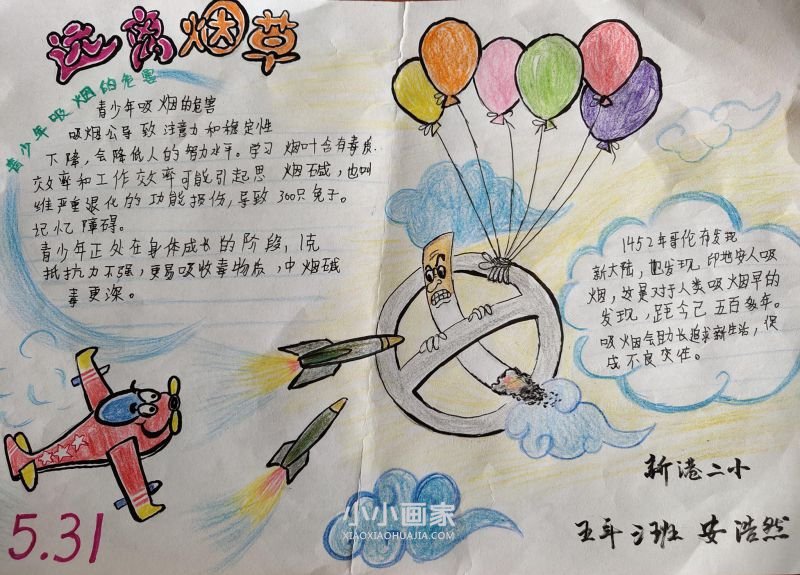 远离烟草
青少年吸烟的危害
青少年吸烟的危害
吸烟会导致注意力和稳定性
下降,会降低人的智力水平。学习
效率和工作效率可能引起思
维严重退化的功能损伤,导致
记忆障碍。
青少年正处在身体成长的阶段,
抵抗力不强,更易吸收毒物质,中
毒更深。
烟叶含有毒质
烟碱,也叫
300只兔子。
1克
烟碱
1452年哥伦布发现
新大陆,也发现印地安人吸
烟,这是对于人类吸烟早的
发现,距今已五百多年。
吸烟会助长追求新生活,促
成不良交往。
新港二小
五年 班 安浩然
5.31
小小画家
XIAOXIAOHUAJIA.COM